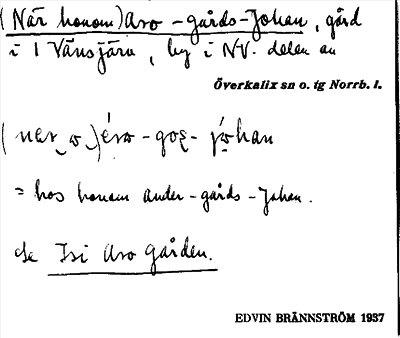 (När honom) Aro-gårds-Johan, gård
i 1 Vänsjärv, by i NV. delen av
Överkalix sn o. tg Norrb. l.
= hos honom ander-gårds-Johan.
se Isi Aro gården.
EDVIN BRÄNNSTRÖM 1937